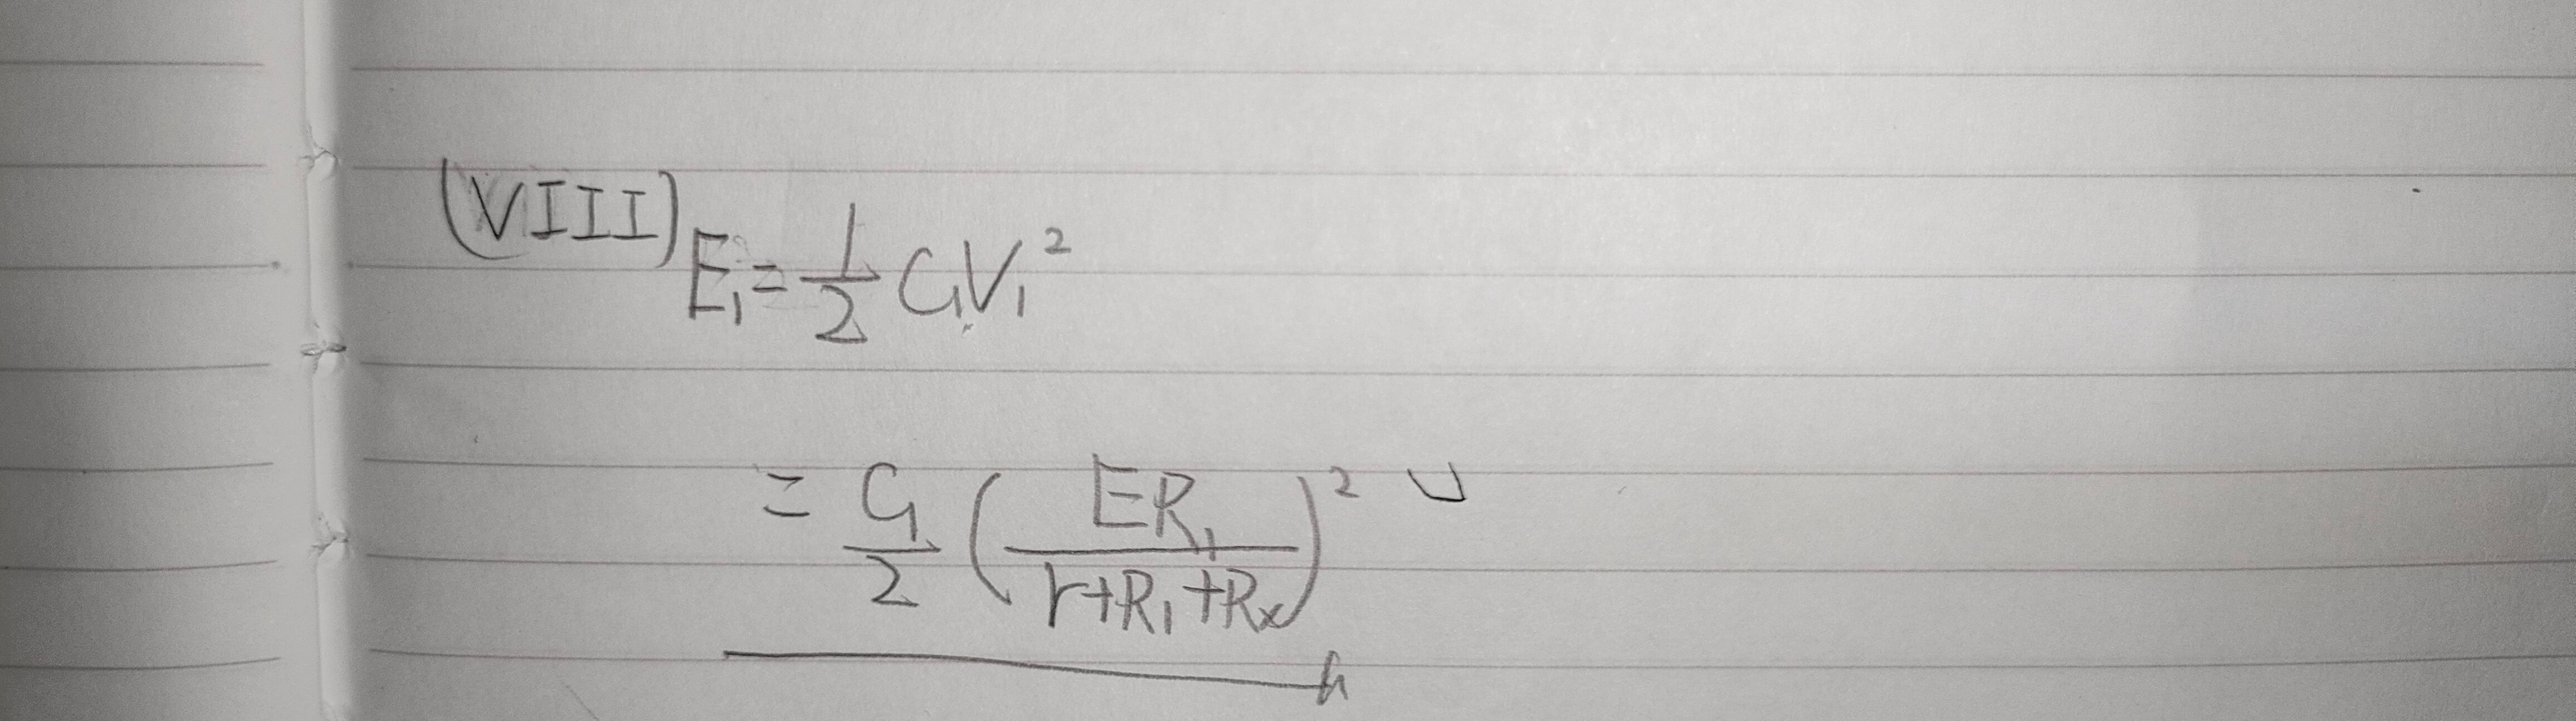 (VIII) E₁ = 1/2 C₁V₁²
= C₁/2 (ER₁/(r+R₁+Rx))²